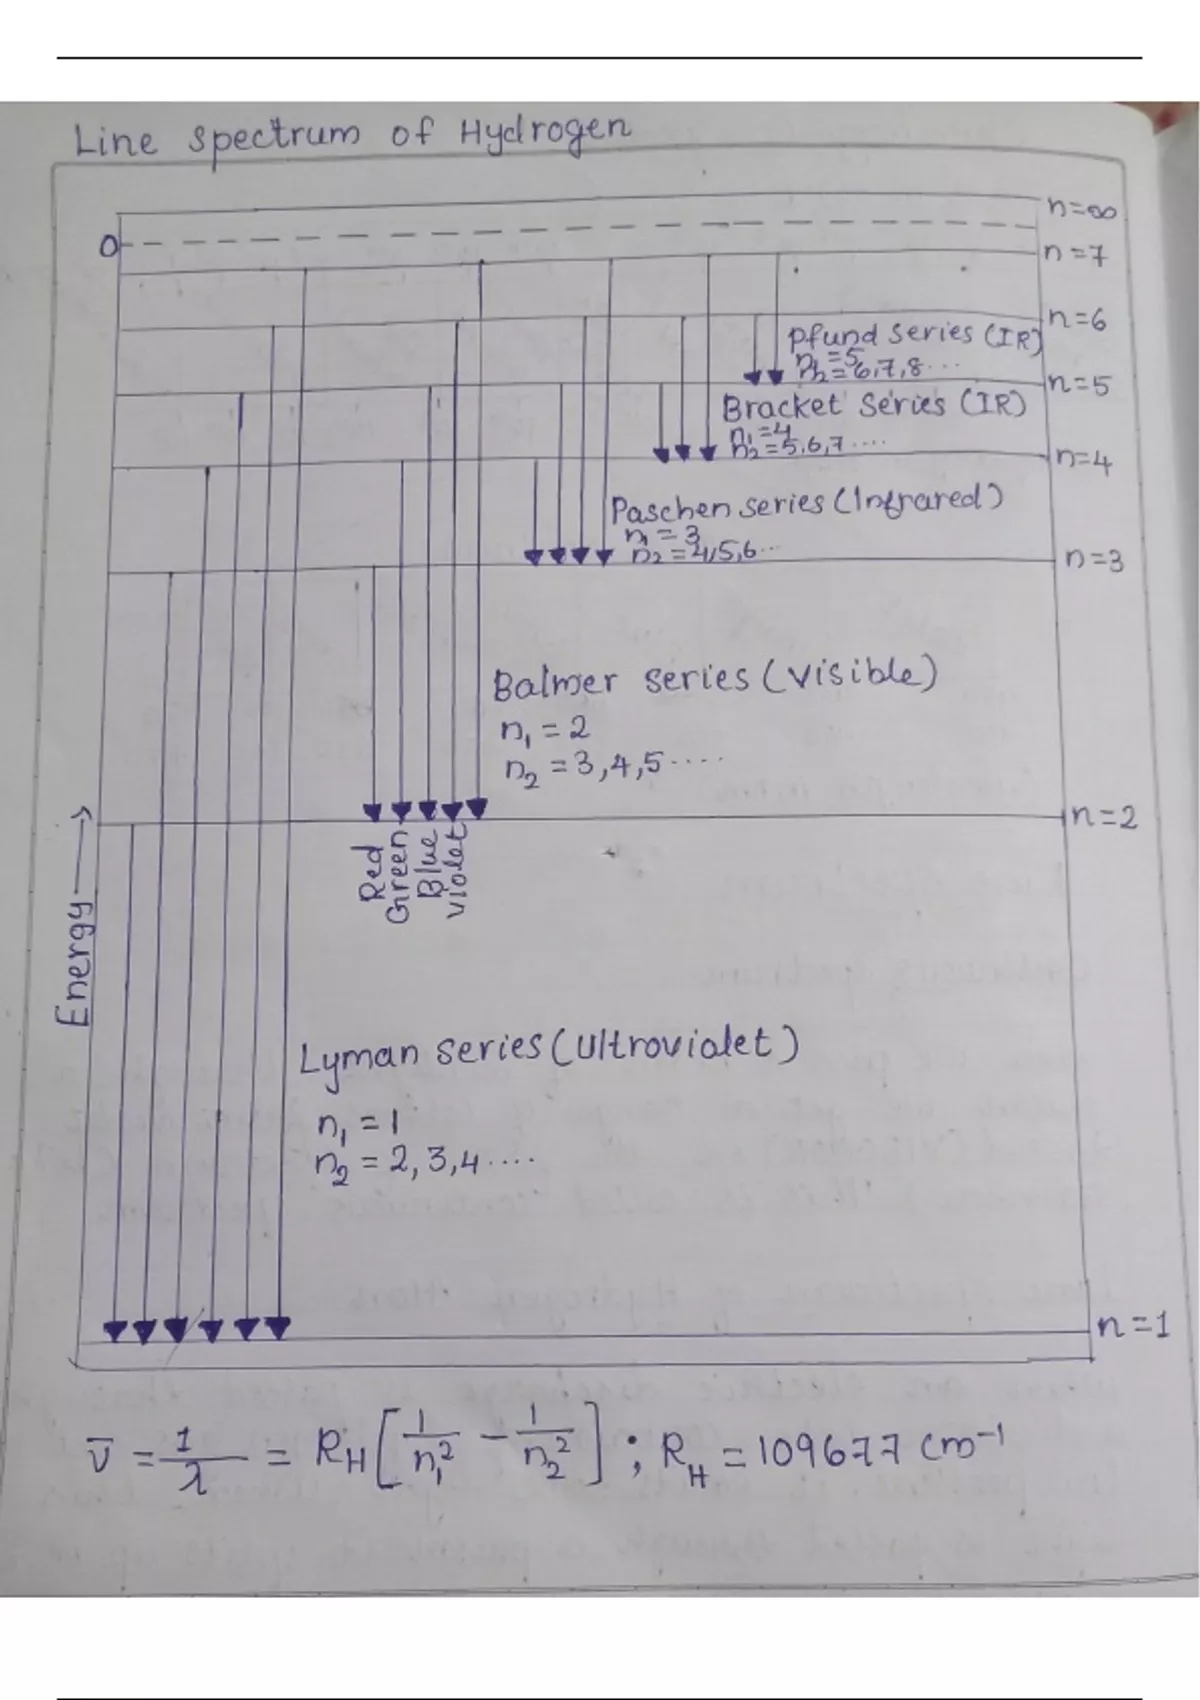 Line spectrum of Hydrogen
n=∞
0
n=7
n=6
Pfund series (IR)
n₁=5
n₂=6,7,8....
n=5
Bracket series (IR)
n₁=4
n₂=5,6,7....
n=4
Paschen series (Infrared)
n₁=3
n₂=4,5,6...
n=3
Balmer series (visible)
n₁=2
n₂=3,4,5....
n=2
Red
Green
Blue
violet
Energy→
Lyman series (Ultroviolet)
n₁=1
n₂=2,3,4....
n=1
ν̄ = 1/λ = R_H [1/n₁² − 1/n₂²] ; R_H = 109677 cm⁻¹